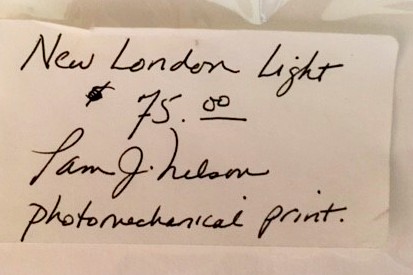 New London Light
$ 75.00
Pam J. Nelson
photomechanical print.